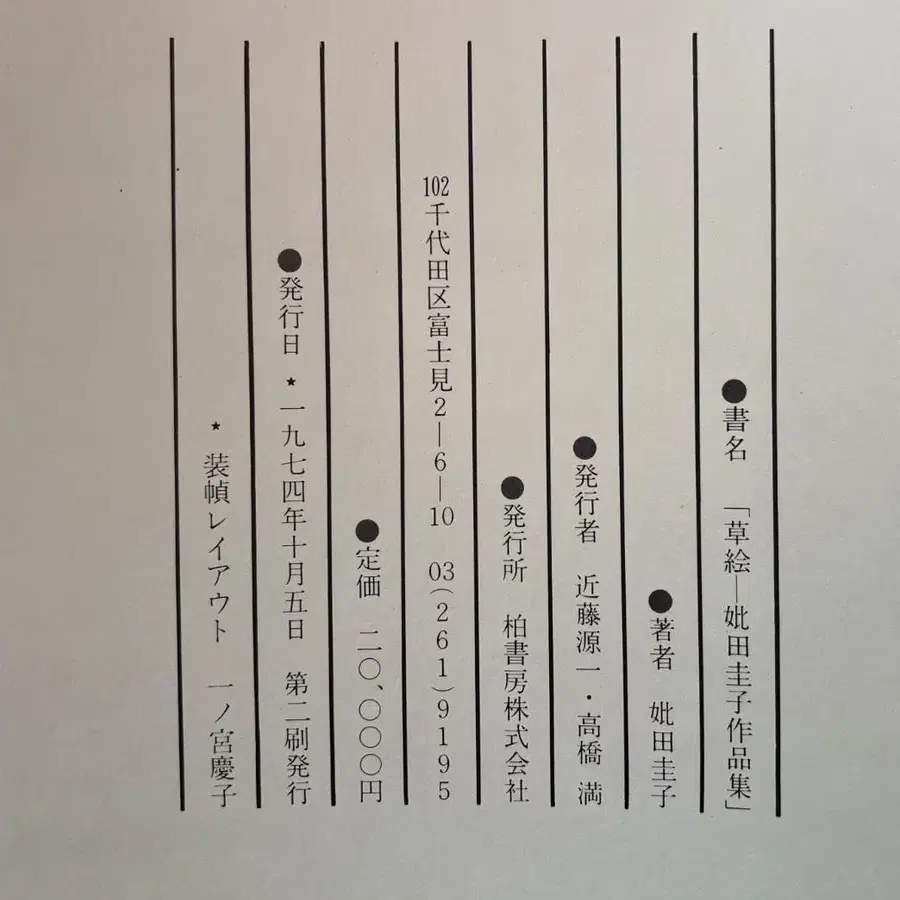 ●書名 「草絵―妣田圭子作品集」
●著者 妣田圭子
●発行者 近藤源一・高橋 満
●発行所 柏書房株式会社
102千代田区富士見2―6―10 03(261)9195
●定価 二〇、〇〇〇円
●発行日 ★ 一九七四年十月五日 第二刷発行
★ 装幀レイアウト 一ノ宮慶子